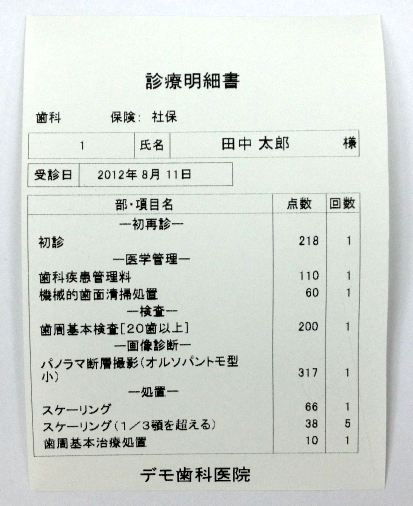 診療明細書
歯科 保険: 社保
1 氏名 田中 太郎 様
受診日 2012年 8月 11日
部・項目名 点数 回数
―初再診―
初診 218 1
―医学管理―
歯科疾患管理料 110 1
機械的歯面清掃処置 60 1
―検査―
歯周基本検査[20歯以上] 200 1
―画像診断―
パノラマ断層撮影(オルソパントモ型
小) 317 1
―処置―
スケーリング 66 1
スケーリング(1/3顎を超える) 38 5
歯周基本治療処置 10 1
デモ歯科医院